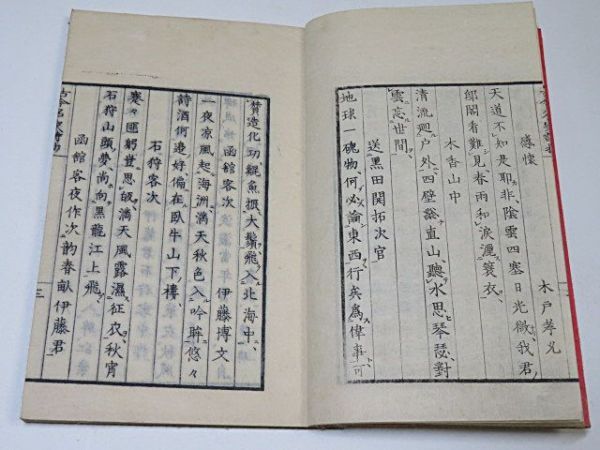 感懷
木戸孝允
天道不知是耶非、陰雲四塞日光微、我君
何閣看難見春雨和淚灑蓑衣、
木香山中
清流廻戸外、四壁總直山、聽水思琴瑟、對
雲忘世間、
送黒田開拓次官
地球一塊物、何必論東西、行矣爲偉事、可
贊造化功、鯤魚振大鬚飛入北海中、
函館客次
伊藤博文
一夜凉風起海洲、滿天秋色入吟眸、悠々
詩酒何邊好、偏在臥牛山下樓
石狩客次
蹇々匪躬豈思歟、滿天風露濕征衣、秋宵
石狩山頭夢、尚向黒龍江上飛、
函館客夜作次韵春畝伊藤君